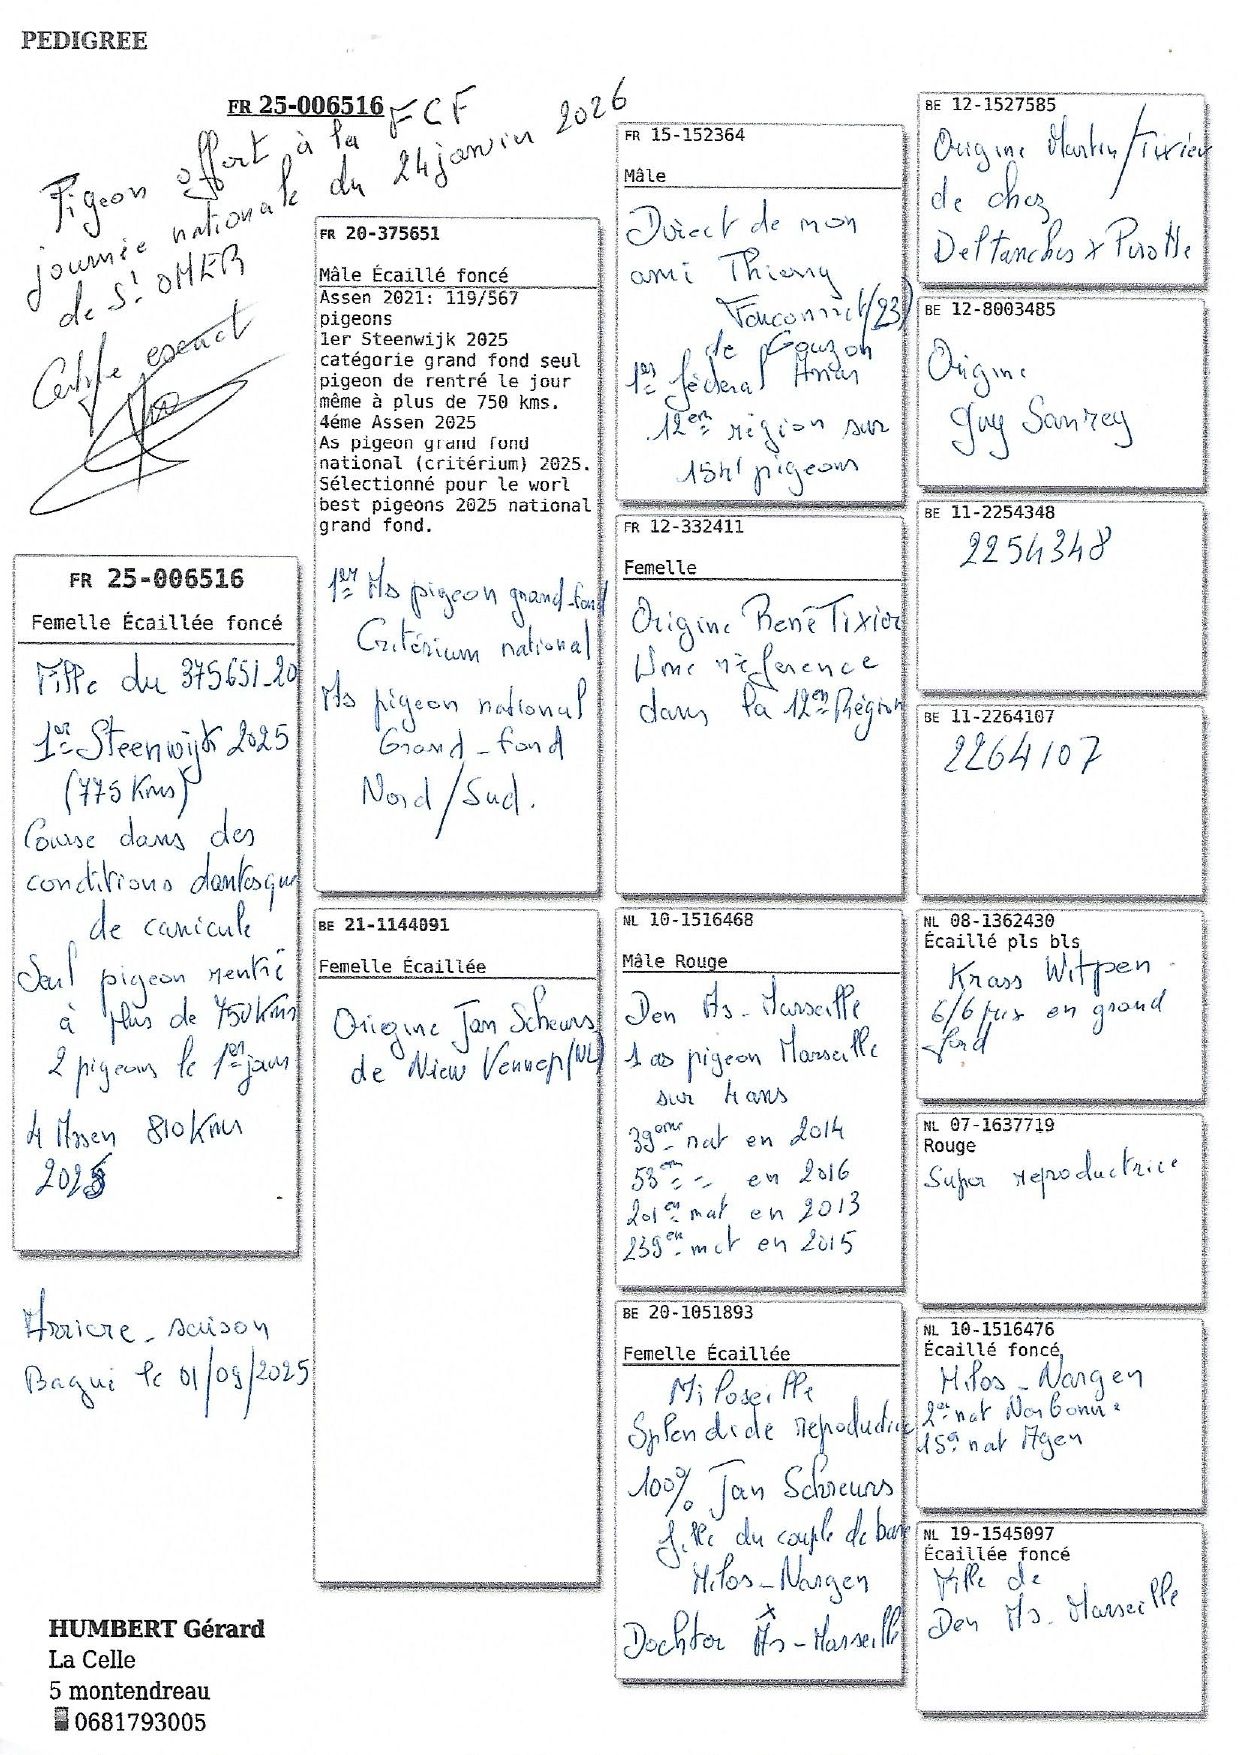 PEDIGREE
FR 25-006516
Pigeon offert à la FCF
journée nationale du 24 janvier 2026
de St OMER
Certifié exact
FR 25-006516
Femelle Écaillée foncé
Fille du 375651_20
1er Steenwijk 2025
(775 Kms)
Course dans des
conditions dantesque
de canicule
Seul pigeon rentré
à plus de 750 Kms
2 pigeons le 1er jour
4 Assen 810 Kms
2025
Arrière-saison
Bagué le 01/09/2025
HUMBERT Gérard
La Celle
5 montendreau
0681793005
FR 20-375651
Mâle Écaillé foncé
Assen 2021: 119/567
pigeons
1er Steenwijk 2025
catégorie grand fond seul
pigeon de rentré le jour
même à plus de 750 kms.
4éme Assen 2025
As pigeon grand fond
national (critérium) 2025.
Sélectionné pour le worl
best pigeons 2025 national
grand fond.
1er As pigeon grand-fond
Critérium national
As pigeon national
Grand-fond
Nord/Sud.
BE 21-1144091
Femelle Écaillée
Origine Jan Scheurs
de Niew Vennep (NL)
FR 15-152364
Mâle
Direct de mon
ami Thierry
(23)
de Gouzon
1er fédéral
12em région sur
1541 pigeons
FR 12-332411
Femelle
Origine René Tixier
Une référence
dans la 12em Région
NL 10-1516468
Mâle Rouge
Den As-Marseille
1 as pigeon Marseille
sur 4 ans
39eme nat en 2014
53em - en 2016
201em nat en 2013
239em nat en 2015
BE 20-1051893
Femelle Écaillée
Miloseille
Splendide reproductrice
100% Jan Schreurs
fille du couple de base
Milos-Nargen
x
Dochter As-Marseille
BE 12-1527585
Origine Martin/Tixier
de chez
Deltanches x Pirotte
BE 12-8003485
Origine
Guy
BE 11-2254348
2254348
BE 11-2264107
2264107
NL 08-1362430
Écaillé pls bls
Krass Witpen
6/6 prix en grand
fond
NL 07-1637719
Rouge
Super reproductrice
NL 10-1516476
Écaillé foncé
Milos-Nargen
2er nat Narbonne
15e nat Agen
NL 19-1545097
Écaillée foncé
Fille de
Den As-Marseille